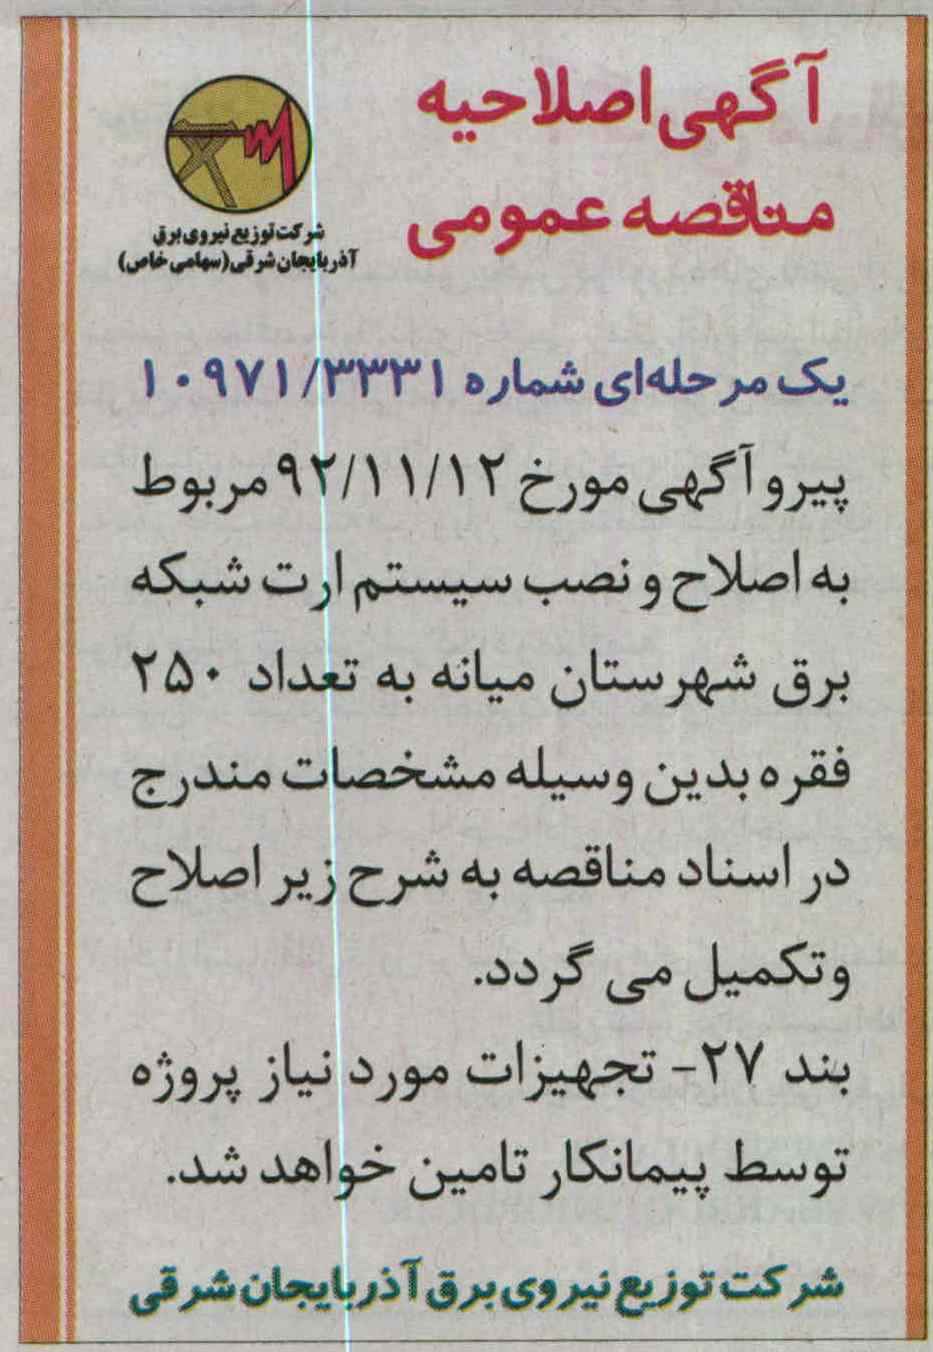 آگهی اصلاحیه
مناقصه عمومی
شرکت توزیع نیروی برق
آذربایجان شرقی (سهامی خاص)
یک مرحله‌ای شماره ۱۰۹۷۱/۳۳۳۱
پیرو آگهی مورخ ۹۲/۱۱/۱۲ مربوط
به اصلاح و نصب سیستم ارت شبکه
برق شهرستان میانه به تعداد ۲۵۰
فقره بدین وسیله مشخصات مندرج
در اسناد مناقصه به شرح زیر اصلاح
و تکمیل می گردد.
بند ۲۷- تجهیزات مورد نیاز پروژه
توسط پیمانکار تامین خواهد شد.
شرکت توزیع نیروی برق آذربایجان شرقی